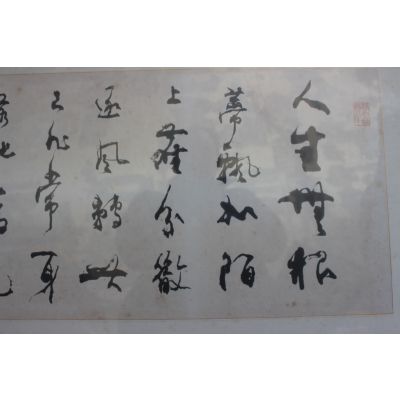 人生無根
蒂飄如陌
上塵分散
逐風轉此
已非常身